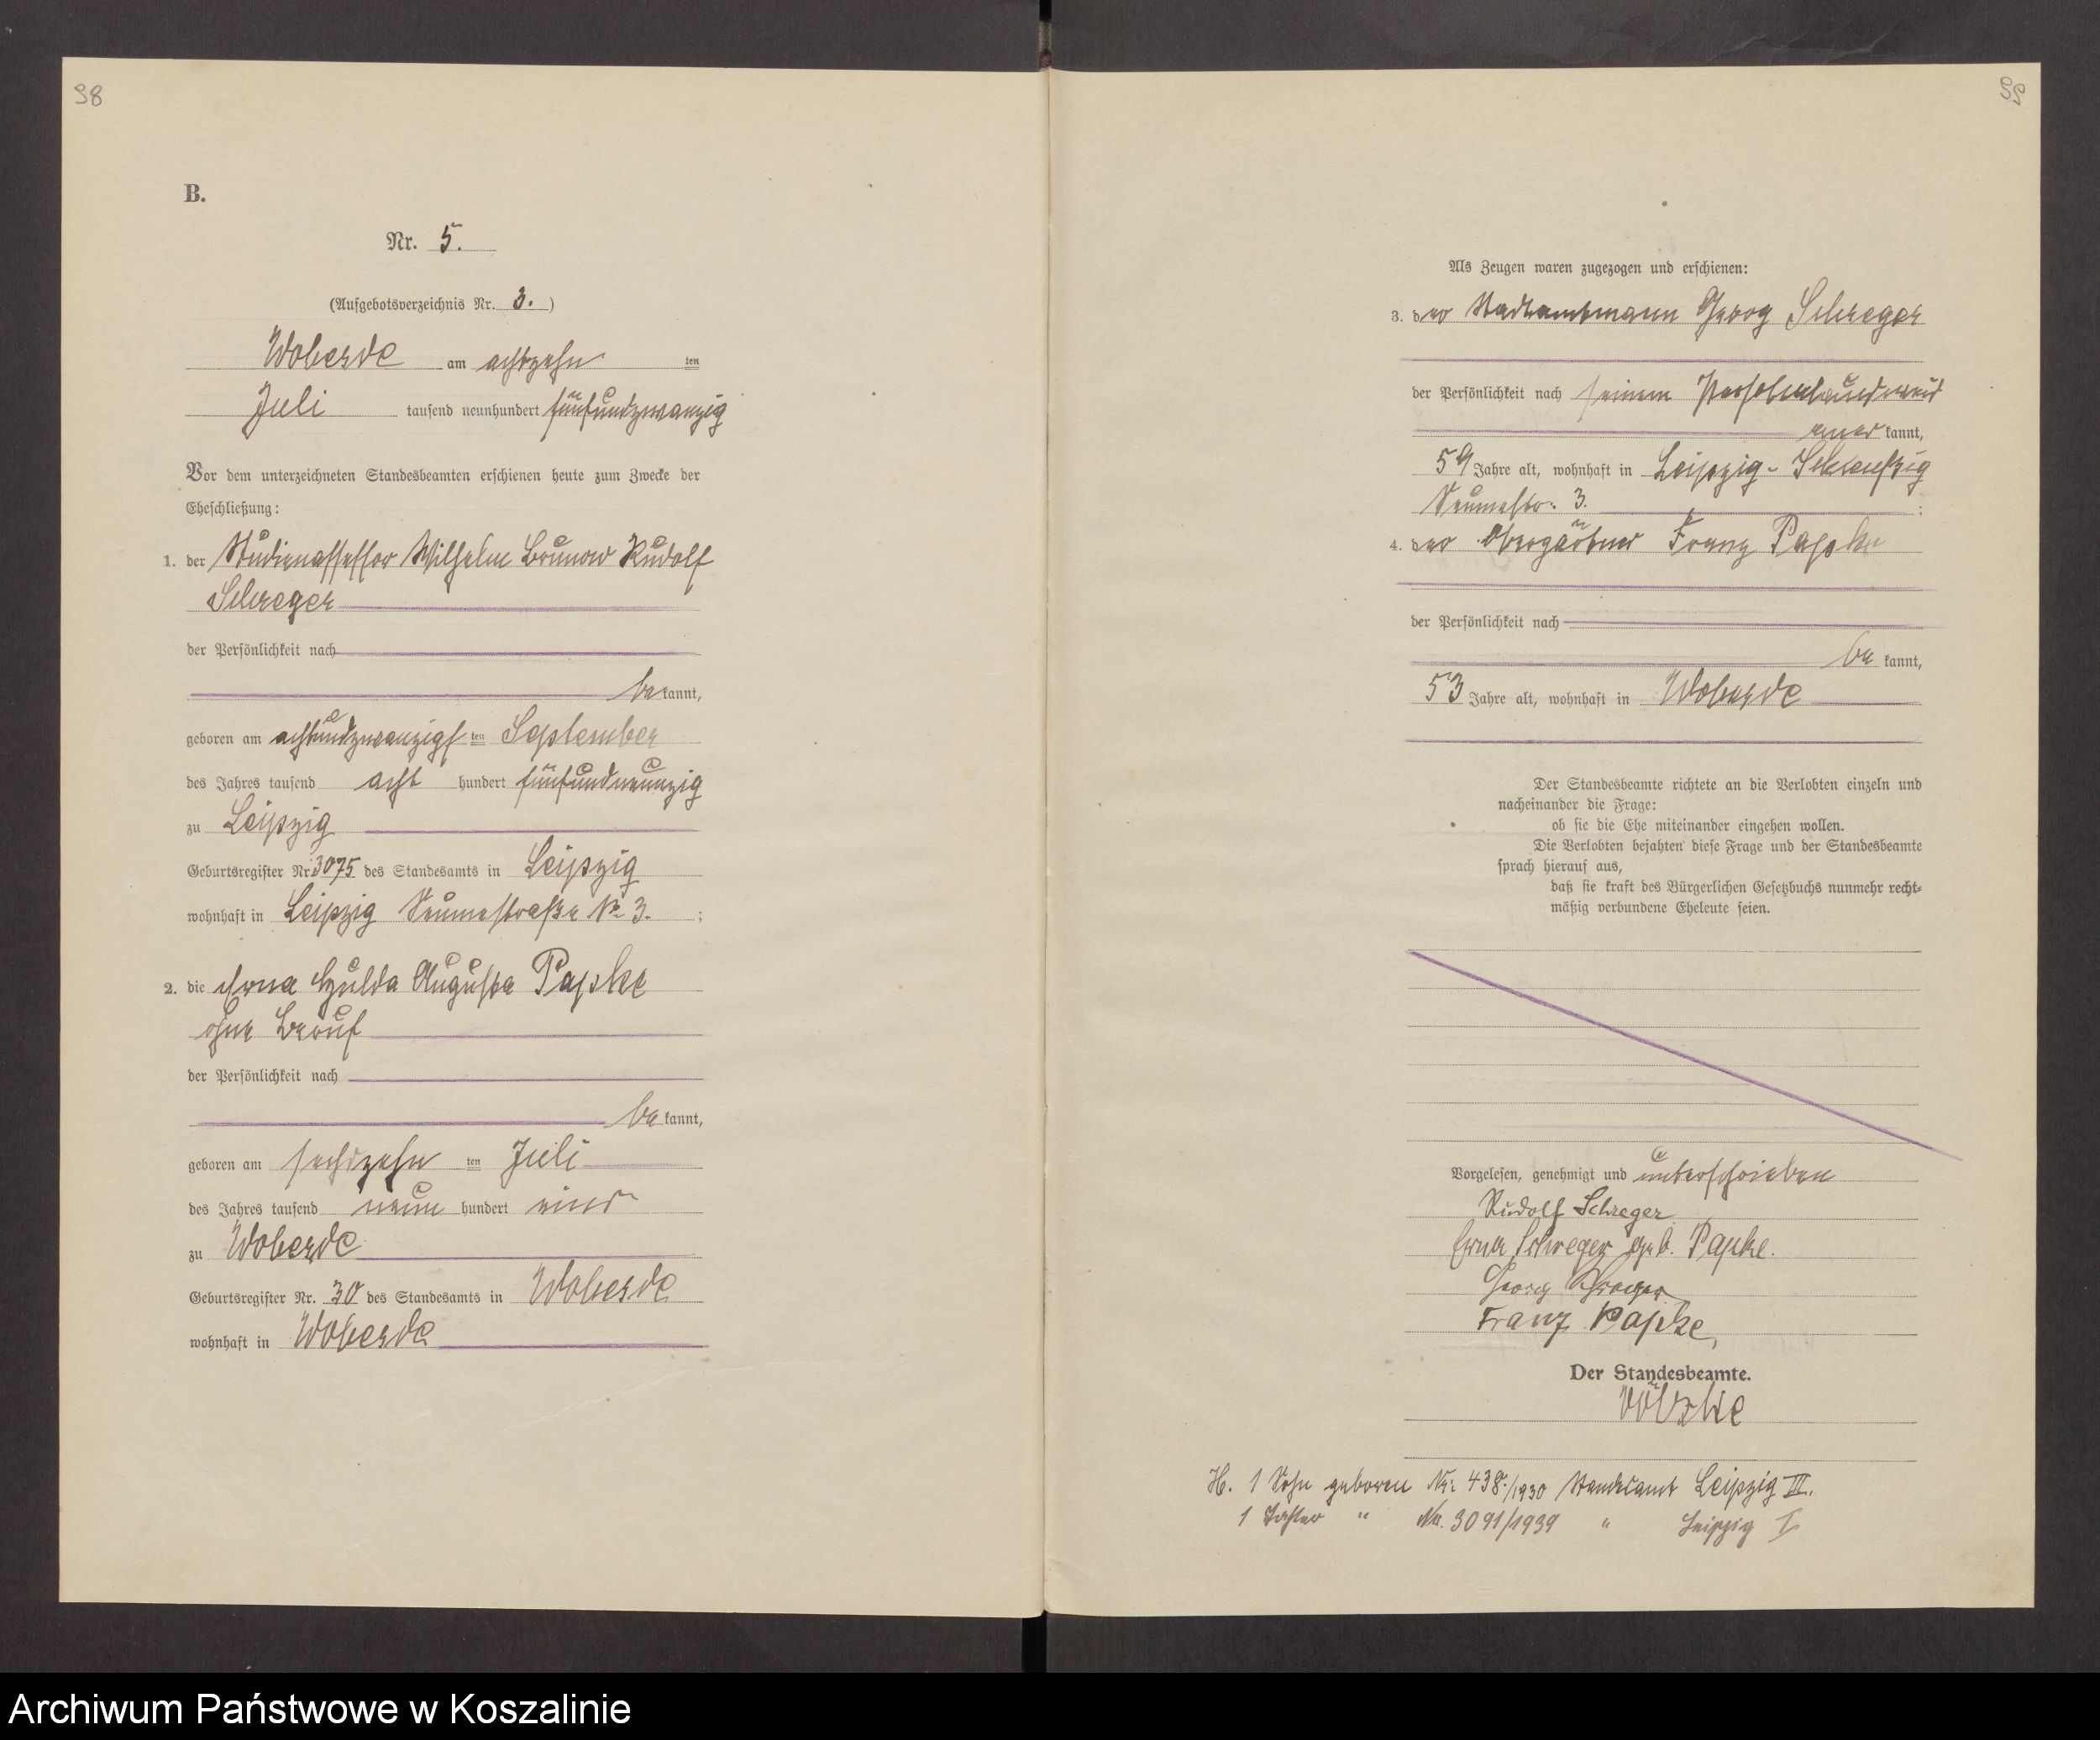 98
B.
Nr. 5.
(Aufgebotsverzeichnis Nr. 3.)
Wobesde am achtzehn ten
Juli tausend neunhundert fünfundzwanzig
Vor dem unterzeichneten Standesbeamten erschienen heute zum Zwecke der
Eheschließung:
1. der Studienassessor Wilhelm Brunow Rudolf
Schreger
der Persönlichkeit nach
be kannt,
geboren am achtundzwanzigs ten September
des Jahres tausend acht hundert fünfundneunzig
zu Leipzig
Geburtsregister Nr. 3075 des Standesamts in Leipzig
wohnhaft in Leipzig Seumestraße No 3. ;
2. die Erna Hulda Auguste Papke
ohne Beruf
der Persönlichkeit nach
be kannt,
geboren am sechszehn ten Juli
des Jahres tausend neun hundert eins
zu Wobesde
Geburtsregister Nr. 30 des Standesamts in Wobesde
wohnhaft in Wobesde
99
Als Zeugen waren zugezogen und erschienen:
3. der Stadtamtmann Georg Schreger
der Persönlichkeit nach seinem
aner kannt,
59 Jahre alt, wohnhaft in Leipzig-Schleußig
Seumestr. 3. ;
4. der Obergärtner Franz Papke
der Persönlichkeit nach
be kannt,
53 Jahre alt, wohnhaft in Wobesde
Der Standesbeamte richtete an die Verlobten einzeln und
nacheinander die Frage:
ob sie die Ehe miteinander eingehen wollen.
Die Verlobten bejahten diese Frage und der Standesbeamte
sprach hierauf aus,
daß sie kraft des Bürgerlichen Gesetzbuchs nunmehr recht-
mäßig verbundene Eheleute seien.
Vorgelesen, genehmigt und unterschrieben
Rudolf Schreger
Erna Schreger geb. Papke.
Georg Schreger
Franz Papke,
Der Standesbeamte.
H. 1 Sohn geboren Nr. 438./1930 Standesamt Leipzig III.
1 Tochter " No. 3091/1939 " Leipzig I
Archiwum Państwowe w Koszalinie